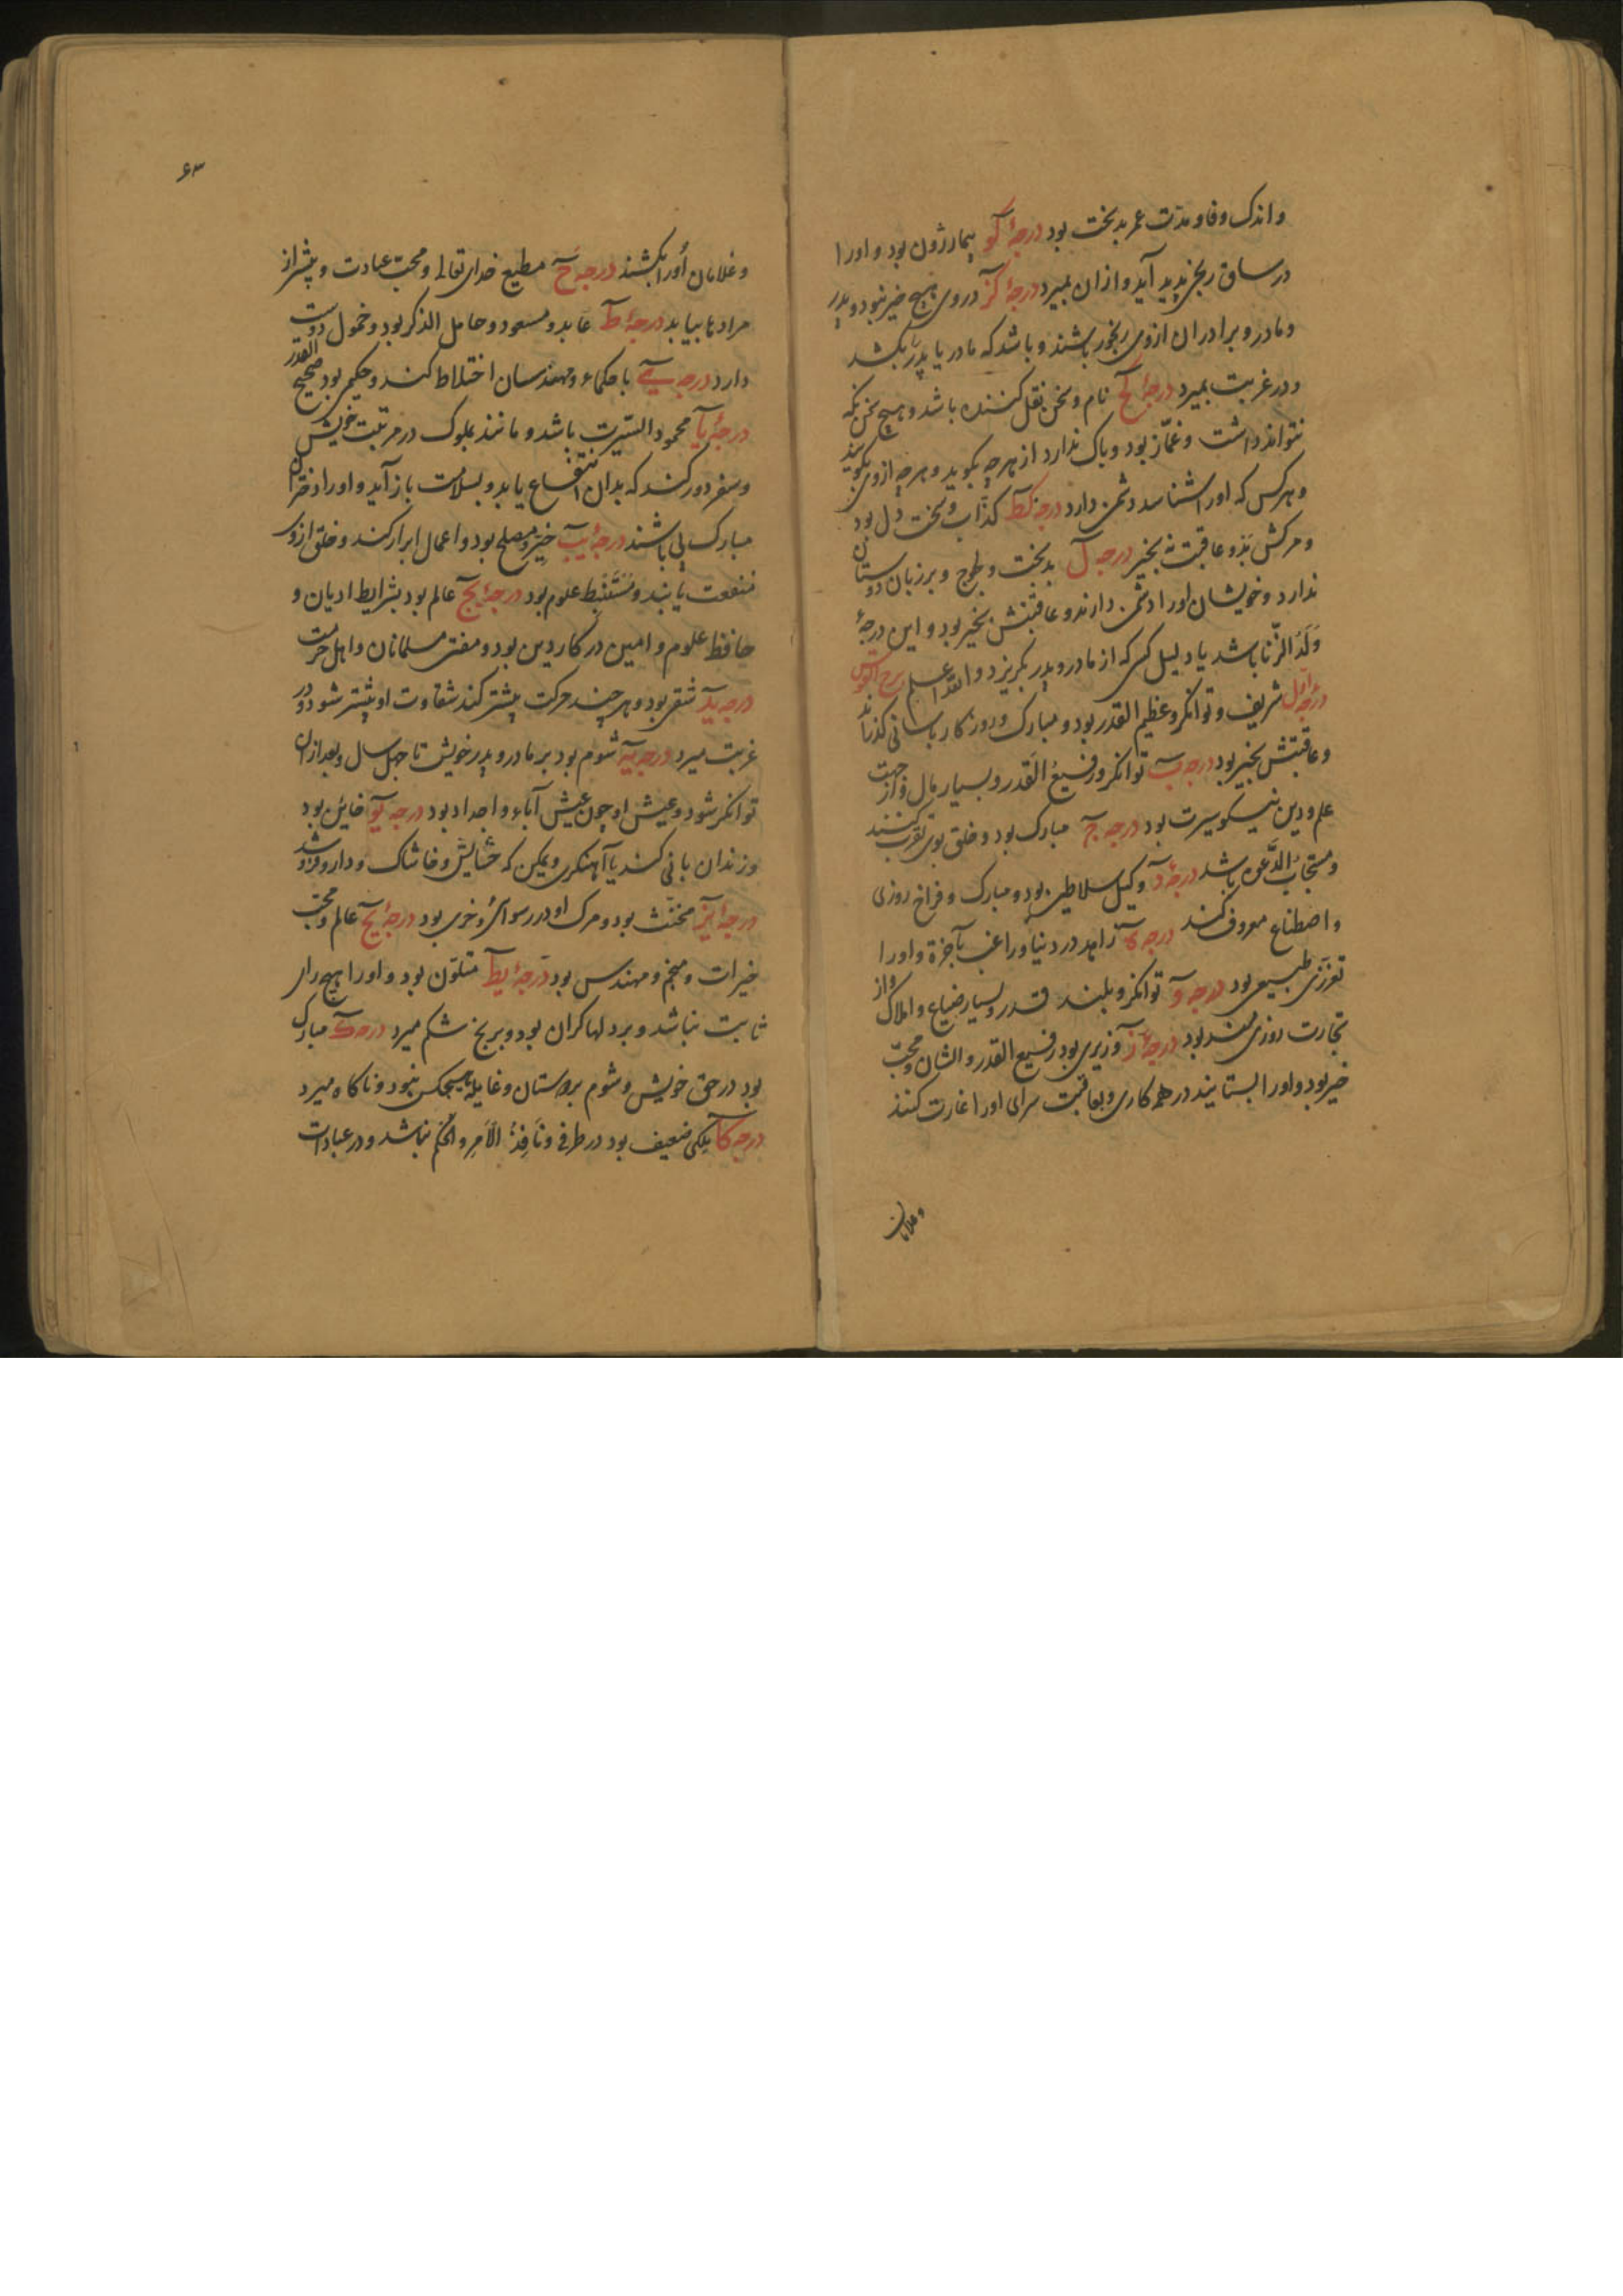 واندک وفا و مدّت عمر بدبخت بود درجهٔ کو بیمار زون بود و اورا
در ساق رنجی پدید آید و از ان بمیرد درجهٔ کز در وی هیچ خیر نبود و پدر
و مادر و برادران ازوی رنجور باشند و باشد که مادر یا پدر را بکشد
و در غربت بمیرد درجهٔ کح نام و سخن نقل کننده باشد و هیچ سخن نکه
نتواند داشت و غمّاز بود و باک ندارد از هرچه بگوید و هرچه ازوی بگویند
و هرکس که اورا شناسد دشمن دارد درجه کط کذّاب و سخت دل بود
و مرکش بد و عاقبت نه بخیر درجه ل بدبخت و بر زبان دوستان
ندارد و خویشان اورا دشمن دارند و عاقبتش بخیر بود و این درجهٔ
وَلَدُ الزّنا باشد یا دلیل کسی که از مادر و پدر بگریزد والله اعلم برج القوس
درجهٔ اول شریف و توانکر و عظیم القدر بود و مبارک و روزکار باسانی کذراند
و عاقبتش بخیر بود درجه ب توانکر و رفیعُ القدر و بسیار مال و از جهت
علم و دین نیکو سیرت بود درجه ج مبارک بود و خلق بوی تقرب کنند
و مستجابُ الدَّعوه باشد درجهٔ د وکیل سلاطین بود و مبارک و فراخ روزی
و اصطناع معروف کند درجه ه زاهد در دنیا و راغب بآخرة و اورا
تعزّزی طبیعی بود درجه و توانکر و بلند قدر و بسیار ضیاع و املاک و از
تجارت روزی مند بود درجهٔ ز وزیری بود رفیع القدر و الشان و محبّ
خیر بود و اورا بستایند در همه کاری و بعاقبت سرای اورا غارت کنند
و غلامان
۶۳
و غلامان اورا بکشند درجه ح مطیع خدای تعالی و محبّ عبادت و بیشتر از
مرادها بیابد درجهٔ ط عابد و مسعود و حامل الذکر بود و خمول دوست
دارد درجه ی با حکماء و مهندسان اختلاط کند و حکیم بود صحیح القدر
درجهٔ یا محمود السّیرت باشد و مانند بملوک در مرتبت خویش
و سفر دور کند که بدان انتفاع یابد و بسلامت باز آید و اورا دختران
مبارک پی باشند درجهٔ یب خیّر و مصلح بود و اعمال ابرار کند و خلق ازوی
منفعت یابند و مُستَنبِط علوم بود درجهٔ یج عالم بود بشرایط ادیان و
حافظ علوم و امین در کار دین بود و مفتی مسلمانان و اهل حرمت
درجه ید شقی بود و هرچند حرکت بیشتر کند شقاوت او بیشتر شود و در
غربت میرد درجه یه شوم بود بر مادر و پدر خویش تا چهل سال و بعد ازان
توانکر شود و عیش او چون عیش آباء و اجداد بود درجه یو خاین بود
و زندان بانی کند یا آهنکری و یمکن که خاشاک و دارو فروشد
درجهٔ یز مخنّث بود و مرک او در رسوائی و خزی بود درجهٔ یح عالم و محبّ
خیرات و منجّم و مهندس بود درجهٔ یط متلوّن بود و اورا هیچ رای
ثابت نباشد و بر دلها کران بود و برنج شکم میرد درجه ک مبارک
بود در حق خویش و شوم بر دوستان و هیچکس نبود و ناکاه میرد
درجه کا ملکی ضعیف بود در طرفی و نَافِذُ الاَمرِ و الحُکم نباشد و در عبادات